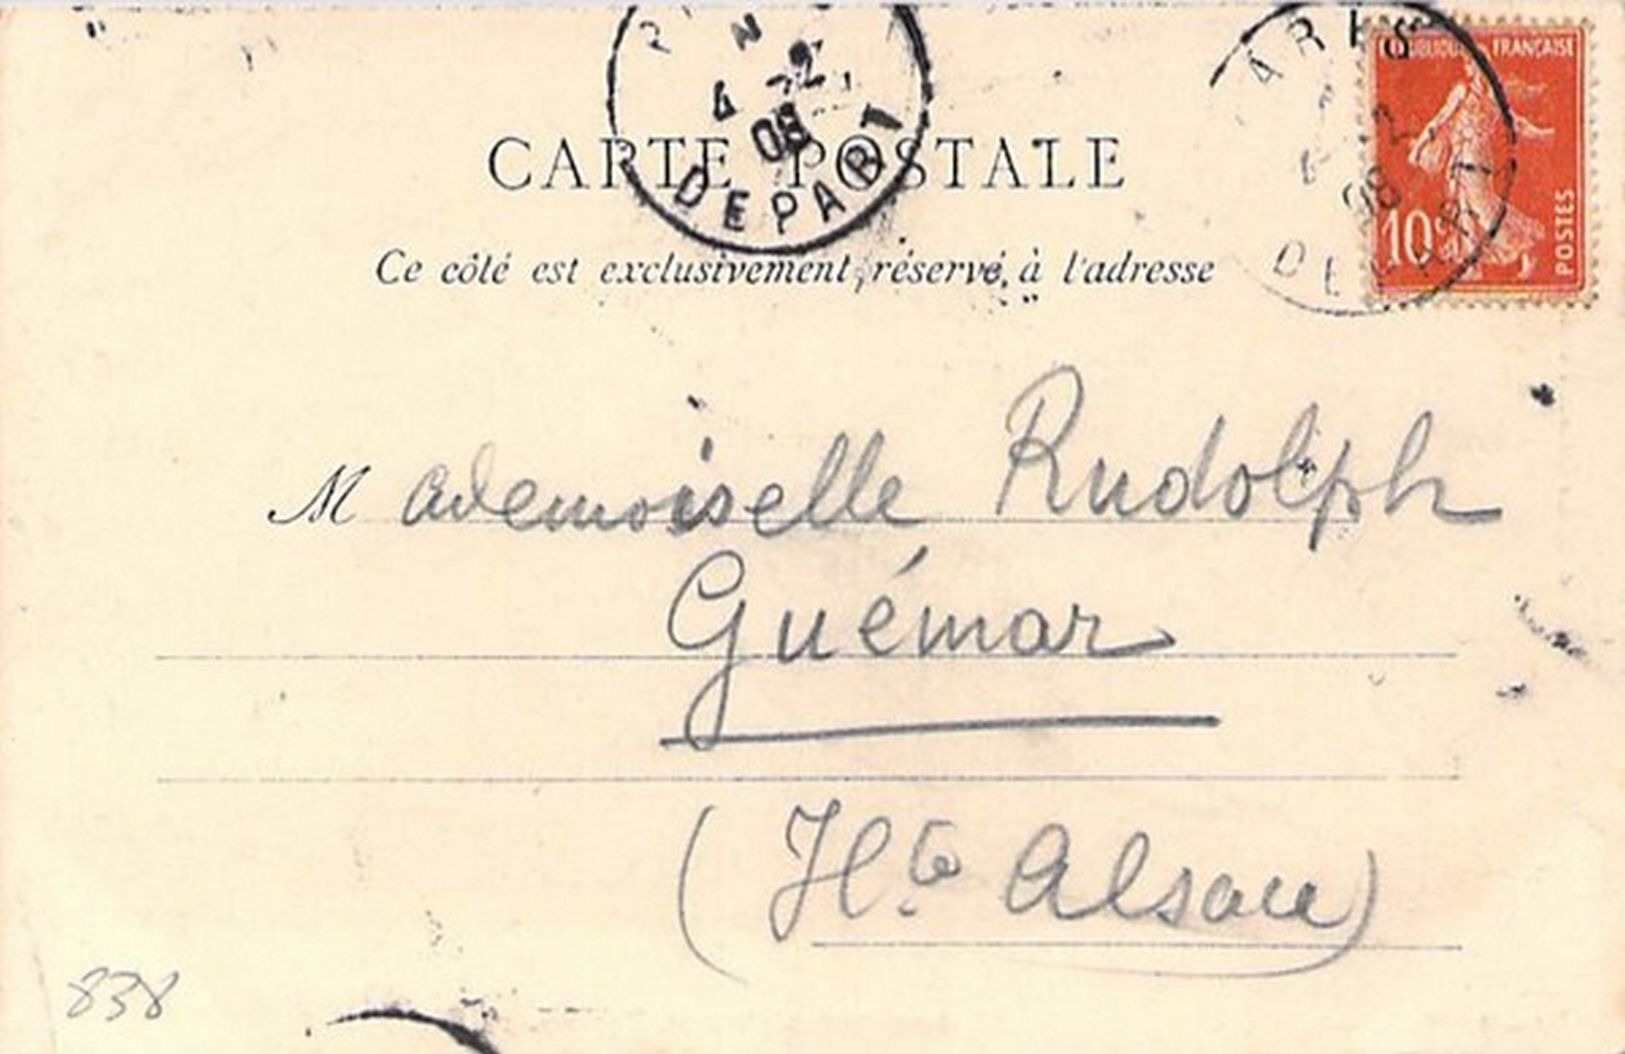 4 -2
08
DEPART
REPUBLIQUE FRANÇAISE
10c
POSTES
CARTE POSTALE
Ce côté est exclusivement réservé à l'adresse
Mademoiselle Rudolph
Guémar
(Hte Alsace)
838